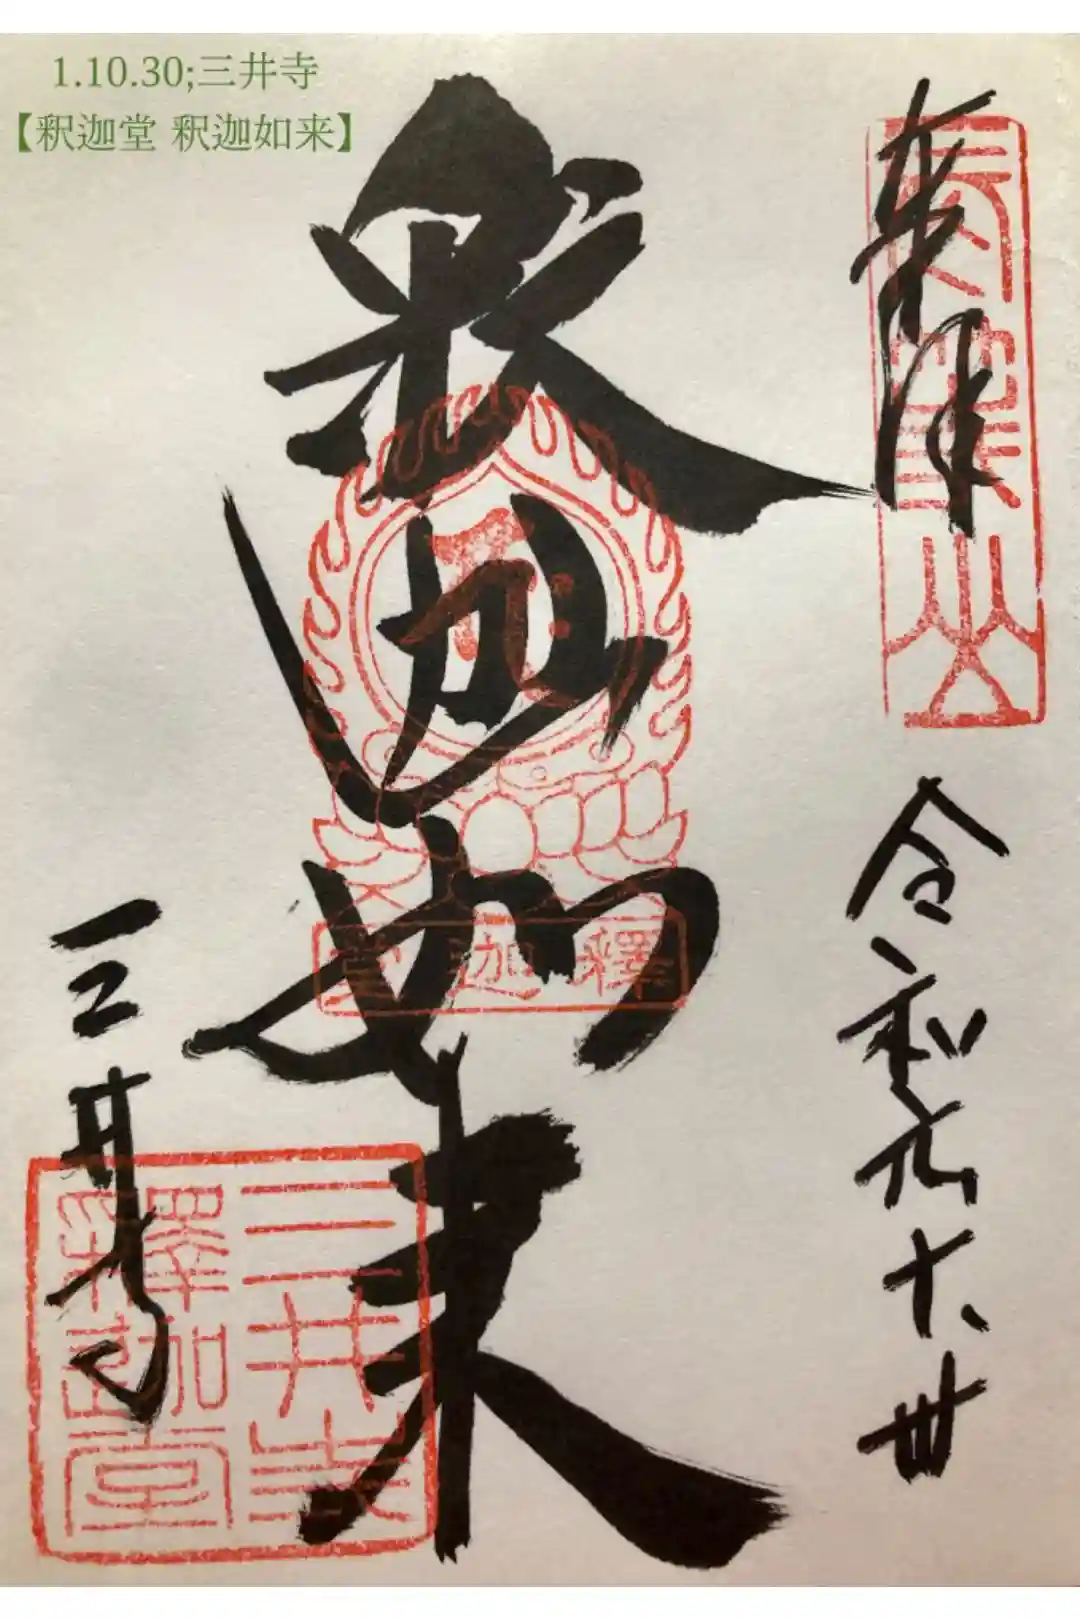 1.10.30;三井寺
【釈迦堂 釈迦如来】
奉拝
長等山
令和元、十、卅
釈迦如来
釋迦堂
三井寺
三井寺
釋迦堂